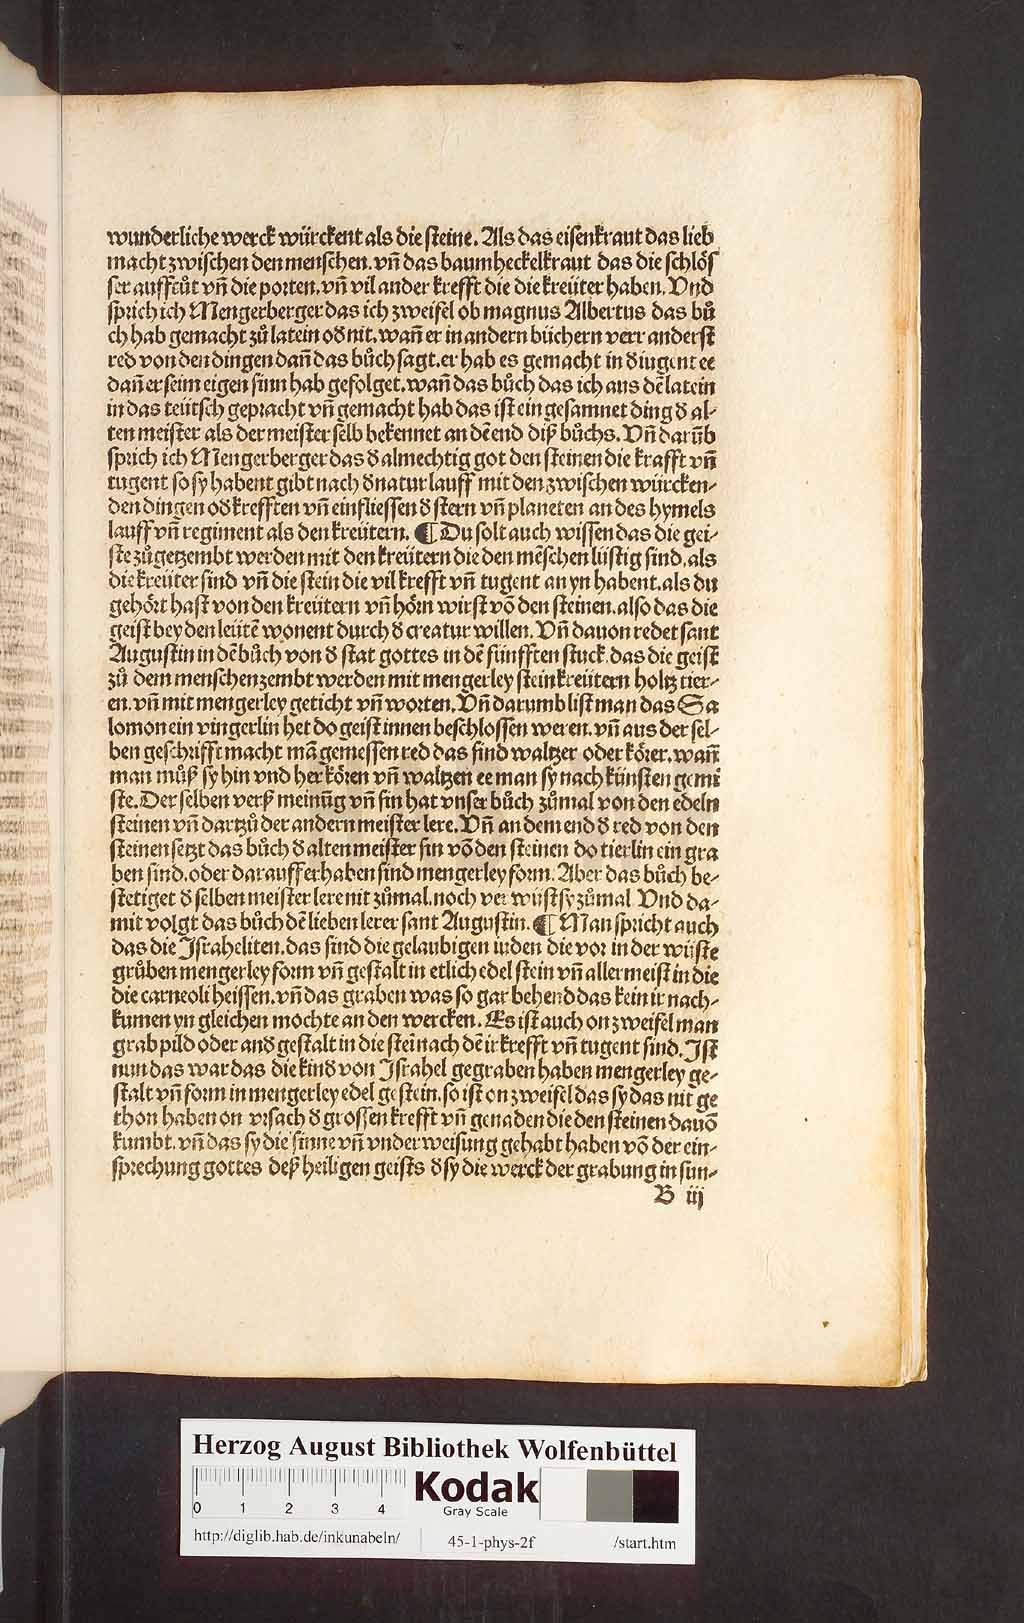 wunderliche werck würckent als die steine. Als das eisenkraut das lieb
macht zwischen den menschen. vñ das baumheckelkraut das die schlöſ
ſer auffcůt vñ die porten. vñ vil ander krefft die die kreüter haben. Vnd
ſprich ich Mengerberger das ich zweifel ob magnus Albertus das bů
ch hab gemacht zů latein oð nit. wañ er in andern büchern verr anderſt
red von den dingen dañ das bůch ſagt. er hab es gemacht in ð iugent ee
dañ er ſeim eigen ſinn hab gefolget. wañ das bůch das ich aus dē latein
in das teütſch gepracht vñ gemacht hab das iſt ein geſamnet ding ð al-
ten meiſter als der meiſter ſelb bekennet an dē end diß bůchs. Vñ darūb
ſprich ich Mengerberger das ð almechtig got den ſteinen die krafft vñ
tugent ſo ſy habent gibt nach ð natur lauff mit den zwiſchen würcken-
den dingen oð krefften vñ einflieſſen ð ſtern vñ planeten an des hymels
lauff vñ regiment als den kreütern. ¶ Du ſolt auch wiſſen das die gei-
ſte zůgetzembt werden mit den kreütern die den mēſchen lüſtig ſind. als
die kreüter ſind vñ die ſtein die vil krefft vñ tugent an yn habent. als du
gehört haſt von den kreütern vñ hörn wirſt vō den ſteinen. alſo das die
geiſt bey den leütē wonent durch ð creatur willen. Vñ dauon redet ſant
Auguſtin in dē bůch von ð ſtat gottes in dē fünfften ſtuck. das die geiſt
zů dem menſchen zembt werden mit mengerley ſtein kreütern holtz tier-
en. vñ mit mengerley geticht vñ worten. Vñ darumb liſt man das Sa
lomon ein vingerlin het do geiſt innen beſchloſſen weren. vñ aus der ſel-
ben geſchrifft macht mā gemeſſen red das ſind waltzer oder körer. wañ
man můß ſy hin vnd her kören vñ waltzen ee man ſy nach künſten gemi
ſte. Der ſelben verß meinūg vñ ſin hat vnſer bůch zůmal von den edeln
ſteinen vñ dartzů der andern meiſter lere. Vñ an dem end ð red von den
ſteinen ſetzt das bůch ð alten meiſter ſin vō den ſteinen do tierlin ein gra
ben ſind. oder darauff erhaben ſind mengerley form. Aber das bůch be-
ſtetiget ð ſelben meiſter lere nit zůmal. noch verwüſt ſy zůmal. Vnd da-
mit volgt das bůch dē lieben lerer ſant Auguſtin. ¶ Man ſpricht auch
das die Iſraheliten. das ſind die gelaubigen iuden die vor in der wüſte
grůben mengerley form vñ geſtalt in etlich edel ſtein vñ aller meiſt in die
die carneoli heiſſen. vñ das graben was ſo gar behend das kein ir nach-
kumen yn gleichen mochte an den wercken. Es iſt auch on zweifel man
grab pild oder and geſtalt in die ſtei nach dē ir krefft vñ tugent ſind. Iſt
nun das war das die kinð von Iſrahel gegraben haben mengerley ge-
ſtalt vñ form in mengerley edel geſtein. ſo iſt on zweifel das ſy das nit ge
thon haben on vrſach ð groſſen krefft vñ genaden die den ſteinen dauō
kumbt. vñ das ſy die ſinne vñ vnderweiſung gehabt haben vō der ein-
ſprechung gottes deß heiligen geiſts ð ſy die werck der grabung in ſun-
B iij
Herzog August Bibliothek Wolfenbüttel
0 1 2 3 4
Kodak
Gray Scale
http://diglib.hab.de/inkunabeln/ 45-1-phys-2f /start.htm